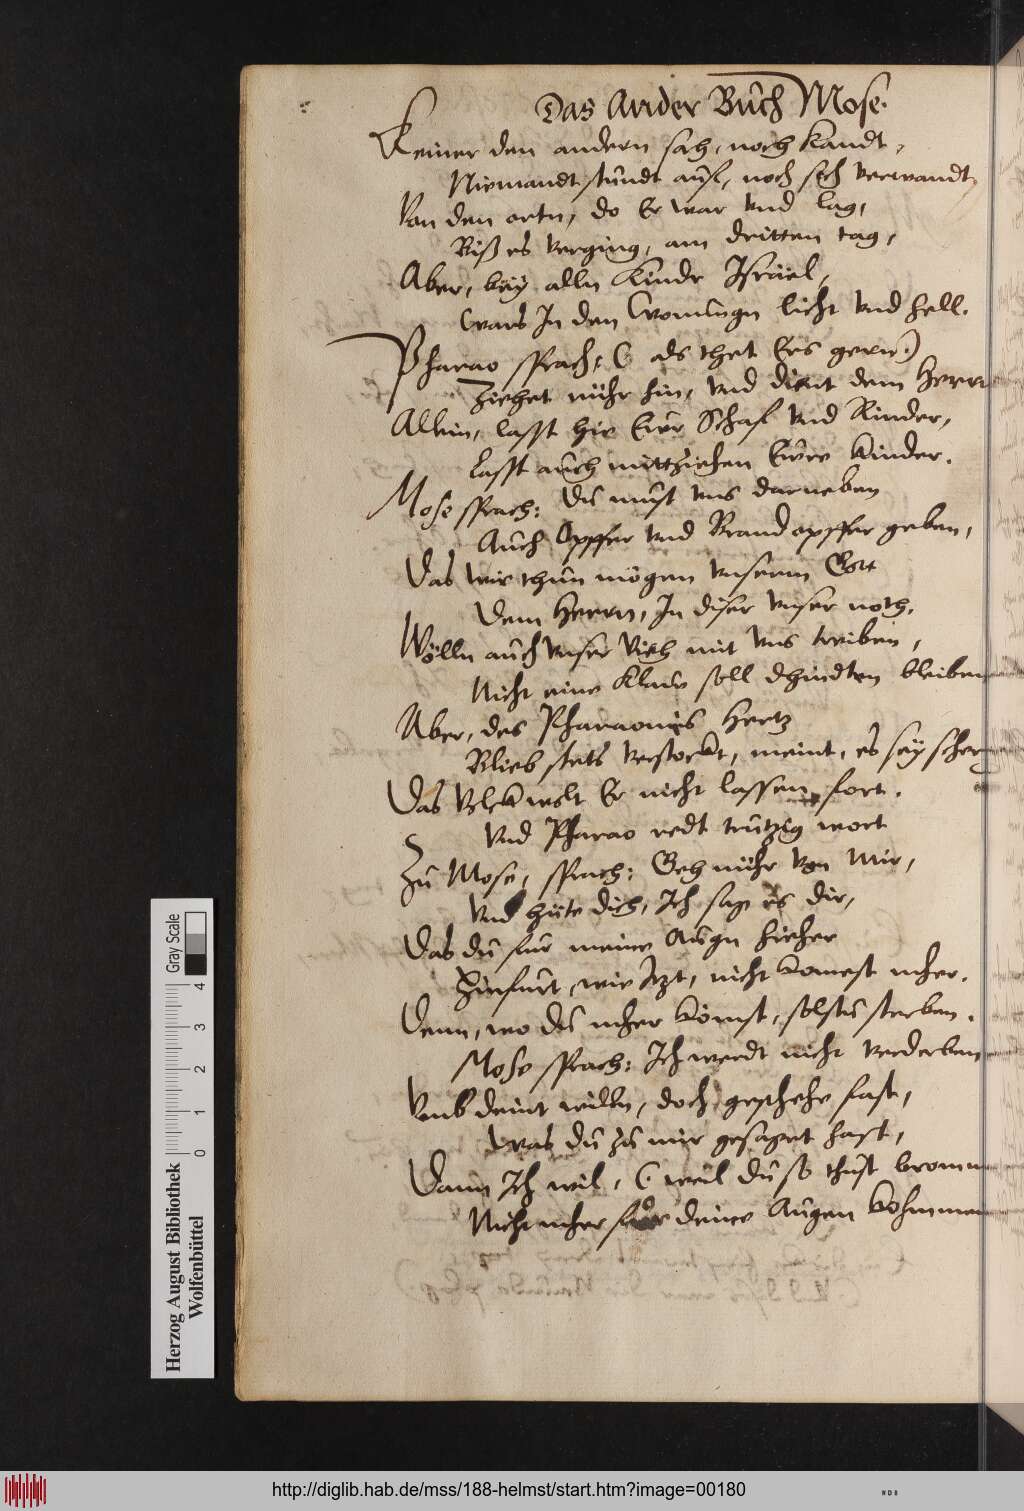 Das Ander Buch Mose.
Keiner den andern sah, noch kandt,
Niemandt stundt auf, noch sich verwandt,
Von den ortn, do Er war vnd lag,
Biß es verging, am dritten tag,
Aber, bey alln Kindr Israel,
Wars In den Wonungn licht vnd hell.
Pharao sprach, ( als thet Ers gern )
Ziehet nuhr hin, vnd dient dem Herrn
Allein, lasst hie Ewr Schaf vnd Rinder,
Lasst auch mittziehen Ewre Kinder.
Mose sprach: Du must vns darneben
Auch Opffer vnd Brandopffer geben,
Das wir thun mögen vnserm Gott
Dem Herrn, In diser vnser noth,
Wölln auch vnser Vieh mit vns treiben,
Nicht eine Klaw soll dhindten bleiben
Aber, des Pharaonis Hertz
Blieb stets verstockt, meint, es sey scher
Das Volck wolt Er nicht lassen fort.
Vnd Pharao redt trutzig wort
Zu Mose, sprach: Geh nuhr von Mir,
Vnd hüte dich, Ich sag es dir,
Das du fur meine Augn hieher
Hinfurt, wie Itzt, nicht komest meher.
Denn, wo du meher kömst, solstu sterben.
Mose sprach: Ich werdt nicht verderben
Vmb deint willn, doch geschehe fast,
Was du zu mir gesaget hast,
Dann Ich wil, ( weil du so thust bromm
Nicht meher fur deine Augen kohmmen
Herzog August Bibliothek
Wolfenbüttel
0 1 2 3 4
Gray Scale
http://diglib.hab.de/mss/188-helmst/start.htm?image=00180